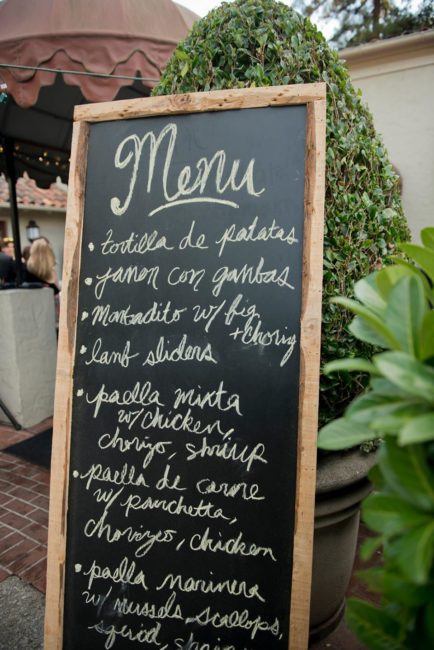 Menu
• tortilla de patatas
• jamon con gambas
• Montadito w/ fig
+ choriz
• lamb sliders
• paella mixta
w/ chicken,
chorizo, shrimp
• paella de carne
w/ panchetta,
chorizo, chicken
• paella marinera
w/ mussels, scallops,
squid, shrimp